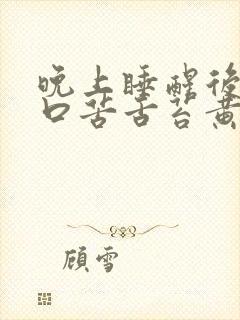 晚上睡醒後
口苦舌苔黃
顧雪